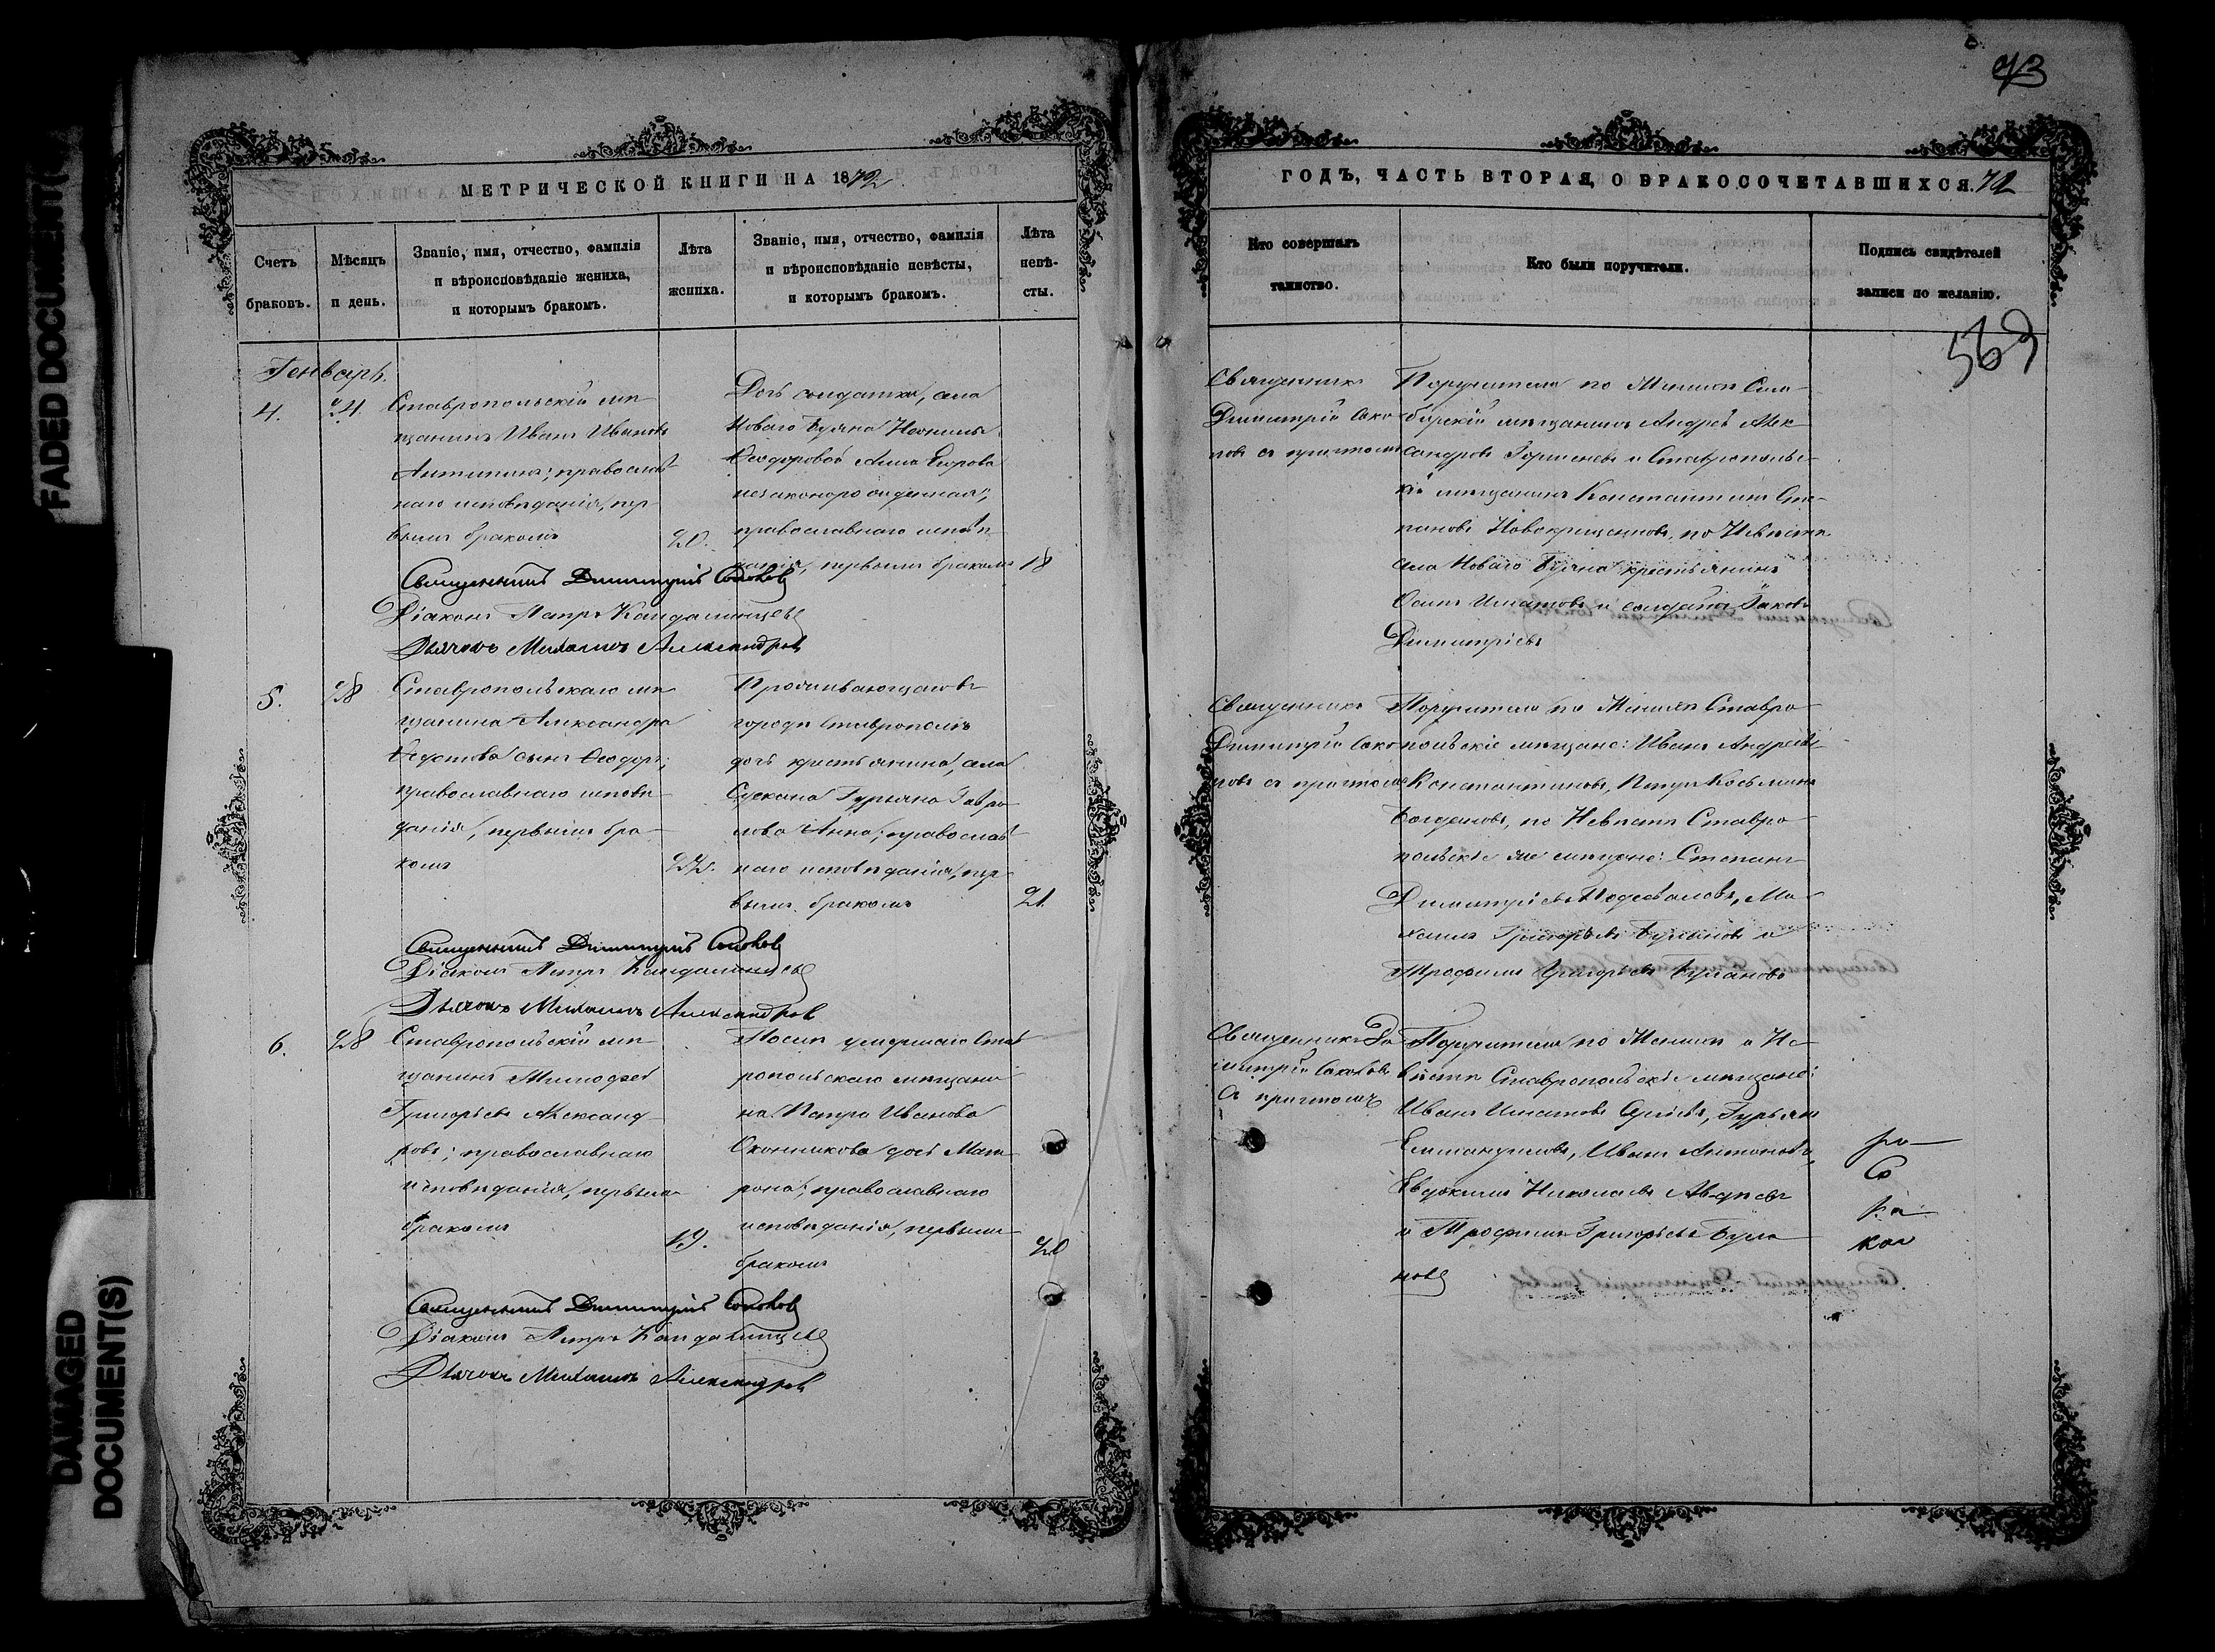 FADED DOCUMENT(
DAMAGED
DOCUMENT(S)
МЕТРИЧЕСКОЙ КНИГИ НА 1872
Счетъ
браковъ.
Мѣсяцъ
и день.
Званіе, имя, отчество, фамилія
и вѣроисповѣданіе жениха,
и которымъ бракомъ.
Лѣта
жениха.
Званіе, имя, отчество, фамилія
и вѣроисповѣданіе невѣсты,
и которымъ бракомъ.
Лѣта
невѣ-
сты.
Генварь.
4.
24
Ставропольскій мѣ
щанинъ Иванъ Ивановъ
Антипинъ; православ
наго исповѣданія, пер
вымъ бракомъ
20.
Дочь солдатки, села
Новаго Буяна
Ѳеодоровой Анна Егорова
незаконорожденная;
православнаго исповѣ
данія, первымъ бракомъ
18
Священникъ Димитрій Соколовъ
Діаконъ Петръ Кандалинцевъ
Дьячокъ Михаилъ Александровъ
5.
28
Ставропольскаго мѣ
щанина Александра
Ѳедотова сынъ Ѳеодоръ;
православнаго исповѣ
данія, первымъ бра
комъ
22.
Проживающаго въ
городѣ Ставрополѣ
дочь крестьянина, села
Сускана Гурьяна Гаврi
лова Анна; православ
наго исповѣданія, пер
вымъ бракомъ
21.
Священникъ Димитрій Соколовъ
Діаконъ Петръ Кандалинцевъ
Дьячокъ Михаилъ Александровъ
6.
28
Ставропольскій мѣ
щанинъ Тимофей
Григорьевъ Александ
ровъ; православнаго
исповѣданія, первымъ
бракомъ
19.
Послѣ умершаго Став
ропольскаго мѣщани
на Петра Иванова
Оконникова дочь Мат
рона; православнаго
исповѣданія, первымъ
бракомъ
20
Священникъ Димитрій Соколовъ
Діаконъ Петръ Кандалинцевъ
Дьячокъ Михаилъ Александровъ
73
ГОДЪ, ЧАСТЬ ВТОРАЯ, О БРАКОСОЧЕТАВШИХСЯ. 72
Кто совершалъ
таинство.
Кто были поручители.
Подпись свидѣтелей
записи по желанію.
569
Священникъ
Димитрій Соко
ловъ съ причтомъ
Поручители по Женихѣ Сим
бирскій мѣщанинъ Андрей Алек
сандровъ и Ставрополь
кій мѣщанинъ Константинъ Сте
пановъ Новокрещеновъ, по Невѣстѣ
села Новаго Буяна крестьянинъ
Осипъ Игнатовъ и солдатъ Яковъ
Димитріевъ
Священникъ
Димитрій Соко
ловъ съ причтомъ
Поручители по Женихѣ Ставро
польскіе мѣщане: Иванъ Андреевъ
Константиновъ, Петръ Козьминъ
по Невѣстѣ Ставро
польскіе же мѣщане: Степанъ
Димитріевъ Подсеваловъ, Ми
хаилъ Григорьевъ Булановъ и
Трофимъ Григорьевъ Булановъ
Священникъ Ди
митрій Соколовъ
съ причтомъ
Поручители по Женихѣ и Не
вѣстѣ Ставропольскіе мѣщане:
Иванъ Игнатовъ Гурьянъ
Иванъ Антоновъ,
Евдокимъ Николаевъ Авдѣевъ
и Трофимъ Григорьевъ Була
новъ